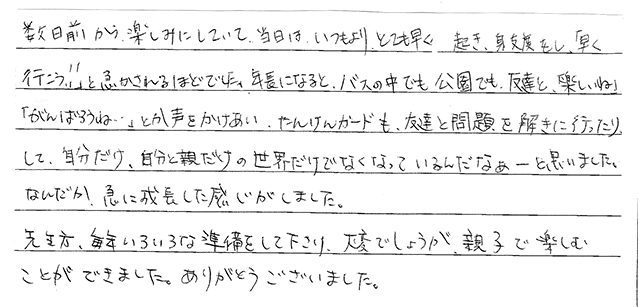 数日前から楽しみにしていて、当日は、いつもより、とても早く 起き、身支度をし、「早く
行こう!!」と急かされるほどでした。年長になると、バスの中でも、公園でも、友達と、「楽しいね」
「がんばろうね…」とか声をかけあい、たんけんカードも、友達と問題を解きに行ったり
して、自分だけ、自分と親だけの世界だけでなくなっているんだなぁーと思いました。
なんだか、急に成長した感じがしました。
先生方、毎年いろいろな準備をして下さり、大変でしょうが、親子で楽しむ
ことができました。ありがとうございました。